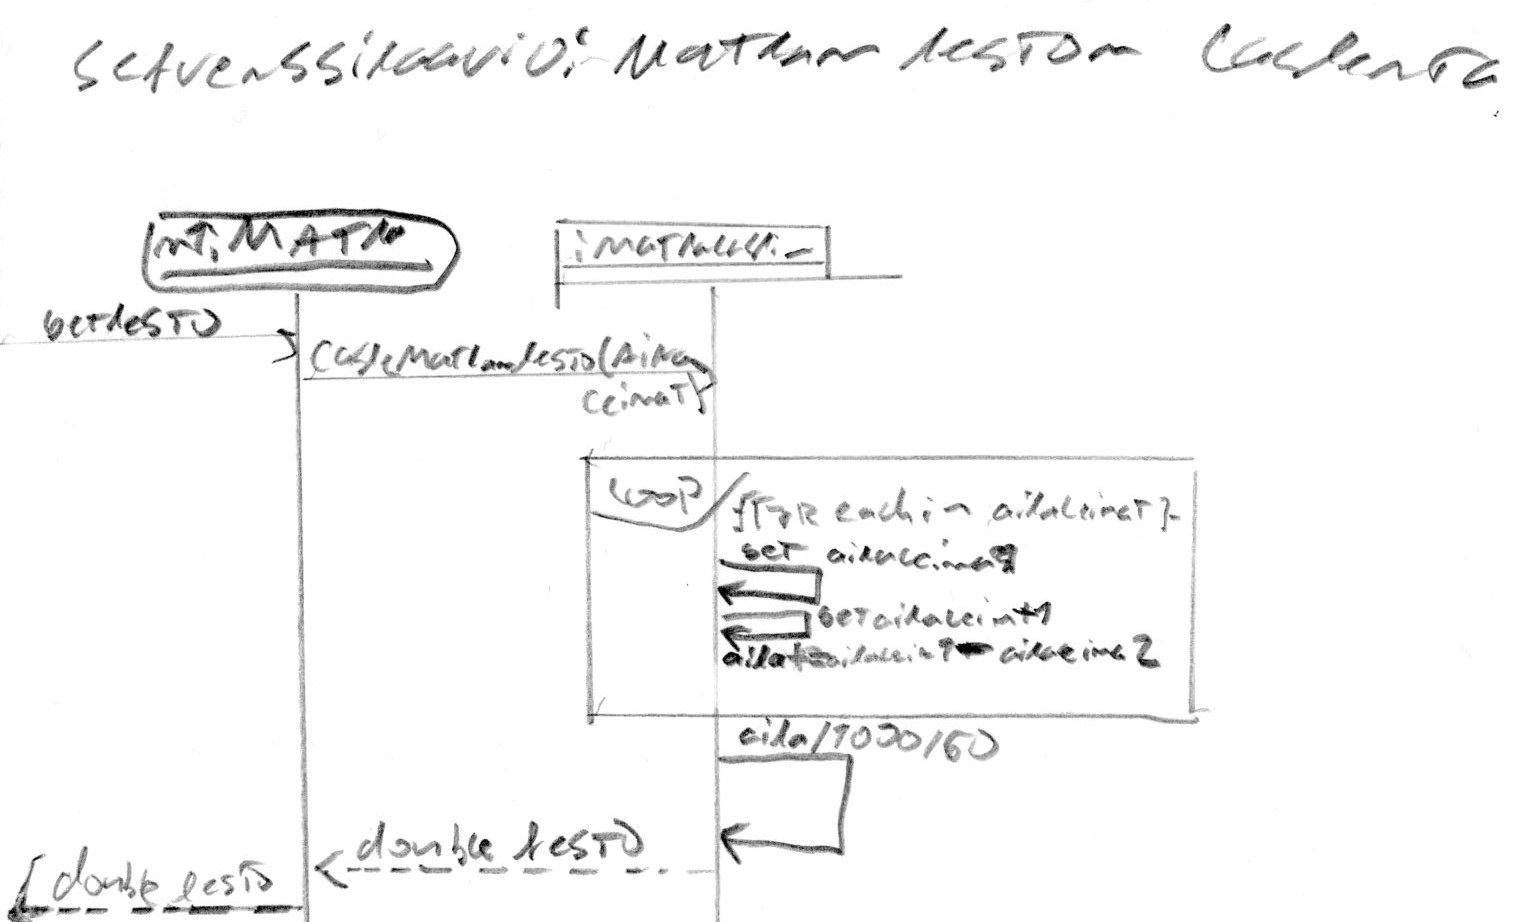 Sekvenssikaavio: Matkan keston laskenta
nt:MATKA
getKesto
LaskeMatkanKesto(Aika
Leimat)
LOOP
[For each in aikaleimat]
get aikaleima1
get aikaleim+1
aika+=aikaleim1-aikaleima2
aika/1000/60
double kesto
double kesto